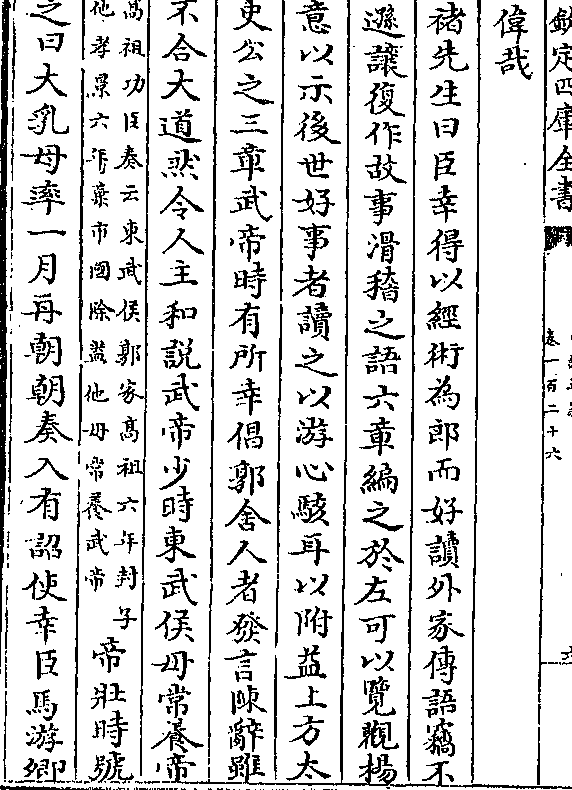 欽定四庫全書
卷一百二十六
偉哉
褚先生曰臣幸得以經術為郎而好讀外家傳語竊不
遜讓復作故事滑稽之語六章編之於左可以覽觀揚
意以示後世好事者讀之以游心駭耳以附益上方太
史公之三章武帝時有所幸倡郭舍人者發言陳辭雖
不合大道然令人主和說武帝少時東武侯母常養帝
高祖功臣奏云東武侯郭家高祖六年封子
他孝景六年棄市國除葢他母常養武帝
帝壯時號
之曰大乳母率一月再朝朝奏入有詔使幸臣馬游卿